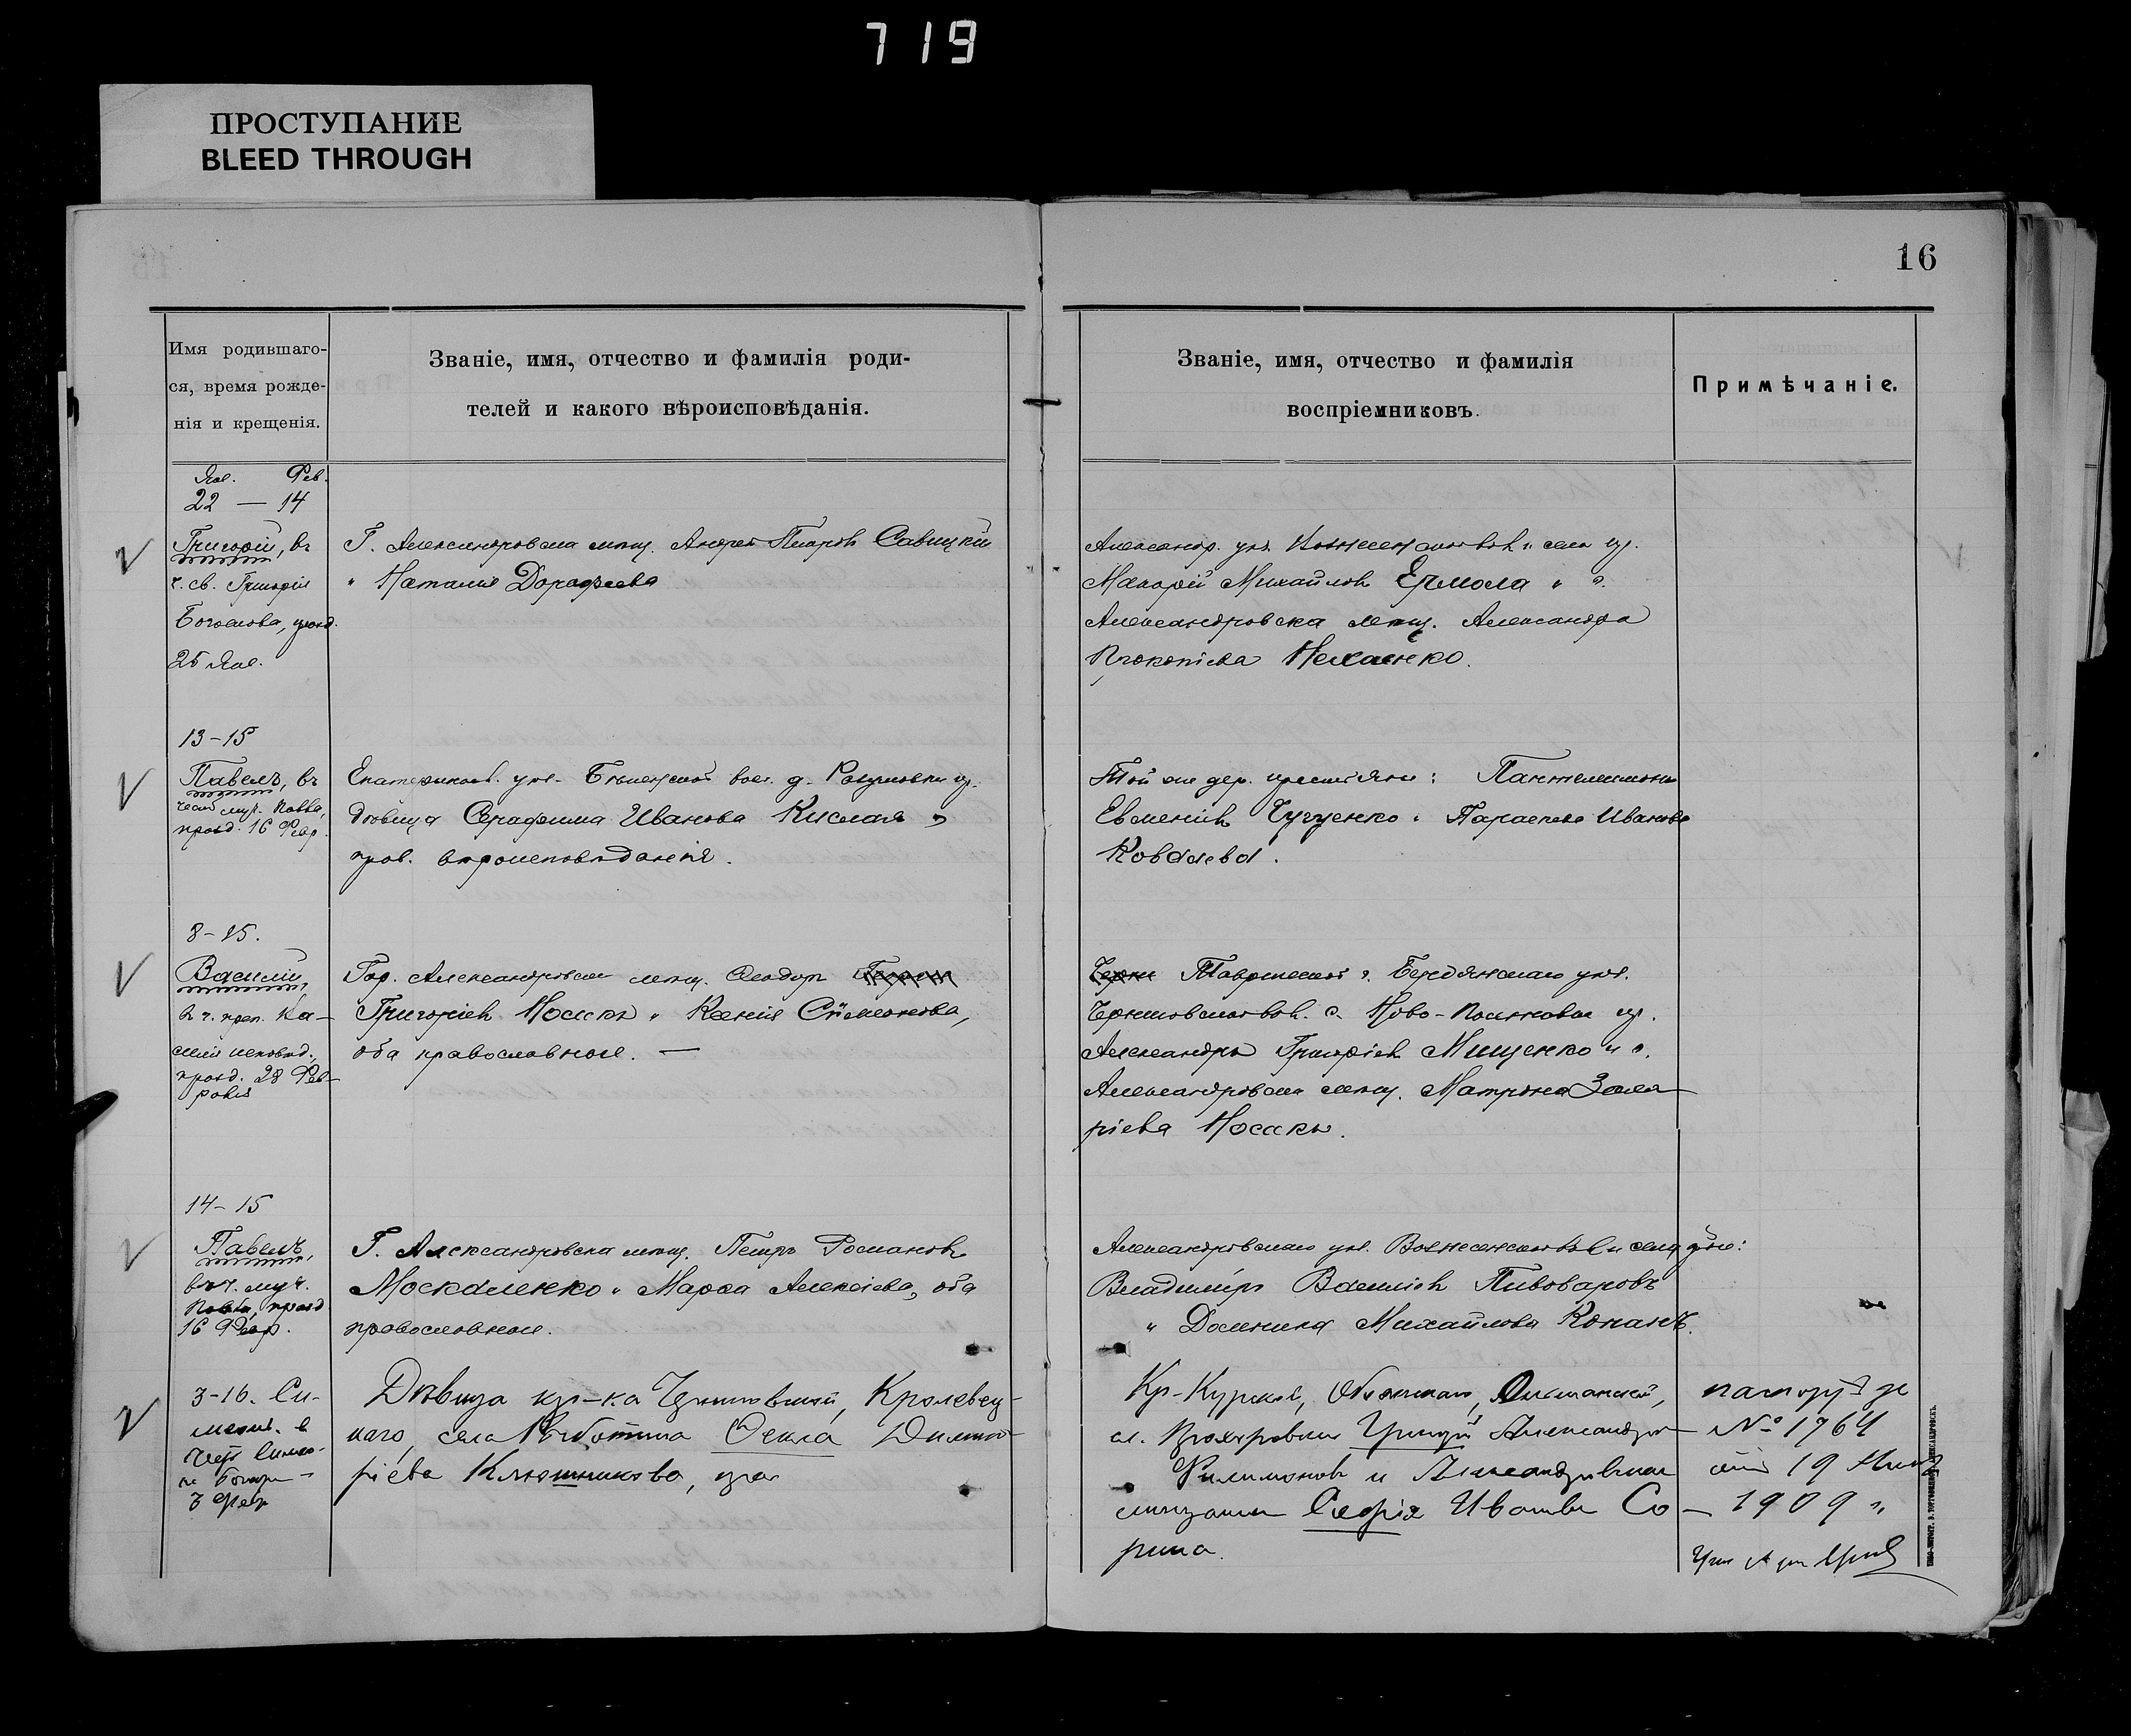 719
ПРОСТУПАНИЕ
BLEED THROUGH
16
Имя родившаго-
ся, время рожде-
нія и крещенія.
Званіе, имя, отчество и фамилія роди-
телей и какого вѣроисповѣданія.
Званіе, имя, отчество и фамилія
воспріемниковъ.
Примѣчаніе.
Янв. Фев.
22 — 14
Григорій, въ
ч. св. Григорія
Богослова, празд.
25 Янв.
Г. Александровска мѣщ. Андрей Петровъ Савицкій
и Наталія Дорофеева
Александр. уѣз. Вознесенской в. и села кр.
Макарій Михайловъ Ермола и г.
Александровска мѣщ. Александра
Прокопіева
13-15
Павелъ, въ
честь муч. Павла,
празд. 16 Февр.
Екатериносл. уѣз. вол. д. кр.
дѣвица Серафима Иванова Кислая,
прав. вѣроисповѣданія.
Той же дер. крестьяне: Пантелеимонъ
Евменіевъ и Параскева Иванова
Ковалева.
8-15.
Василій,
въ ч. преп. Ка-
сілія исповѣд.,
празд. 28 Фев-
раля
Гор. Александровска мѣщ. Ѳеодоръ
Григоріевъ Носакъ и Ксенія Сѵмеонова,
оба православные. —
Таврической г. Бердянскаго уѣз.
вол. с. Ново- кр.
Александръ Григоріевъ Мищенко и г.
Александровска мѣщ. Матрона
ріева Носакъ.
14-15
Павелъ,
въ ч. муч.
Павла, празд
16 Февр.
Г. Александровска мѣщ. Петръ Романовъ
Москаленко и Марѳа Алексіева, оба
православные.
Александровскаго уѣз. Вознесенской в. и села кр-не:
Владиміръ Василіевъ Пивоваровъ
и Домника Михайлова Копань.
3-16. Си-
меонъ. в
честь Симео-
на Богопр-
3 Февр
Дѣвица кр-ка Черниговской, Кролевец-
каго, села Ѳекла Димит-
ріева Ключникова, прав
Кр-Курской, Обоянскаго,
сл. Александров
Филимоновъ и Александровская
мѣщанка Софія Иванова Со-
рина.
паспортъ за
№ 1764
от 19
1909 г.